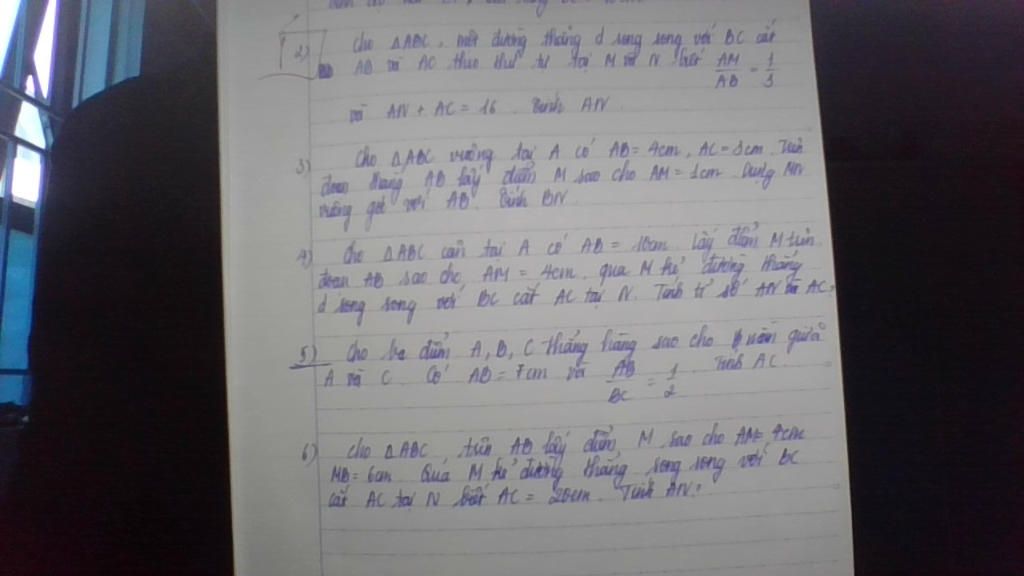 2) Cho △ABC, một đường thẳng d song song với BC cắt
AB và AC theo thứ tự tại M và N biết AM/AB = 1/3
và AN + AC = 16. Tính AN.
3) Cho △ABC vuông tại A có AB = 4cm, AC = 3cm. Trên
đoạn thẳng AB lấy điểm M sao cho AM = 1cm. Dựng MN
vuông góc với AB. Tính BN.
4) Cho △ABC cân tại A có AB = 10cm. Lấy điểm M trên
đoạn AB sao cho AM = 4cm. qua M kẻ đường thẳng
d song song với BC cắt AC tại N. Tính tỉ số AN và AC.
5) Cho ba điểm A, B, C thẳng hàng sao cho B nằm giữa
A và C. Có AB = 7cm và AB/BC = 1/2. Tính AC.
6) Cho △ABC, trên AB lấy điểm M sao cho AM = 4cm
MB = 6cm. Qua M kẻ đường thẳng song song với BC
cắt AC tại N biết AC = 20cm. Tính AN.